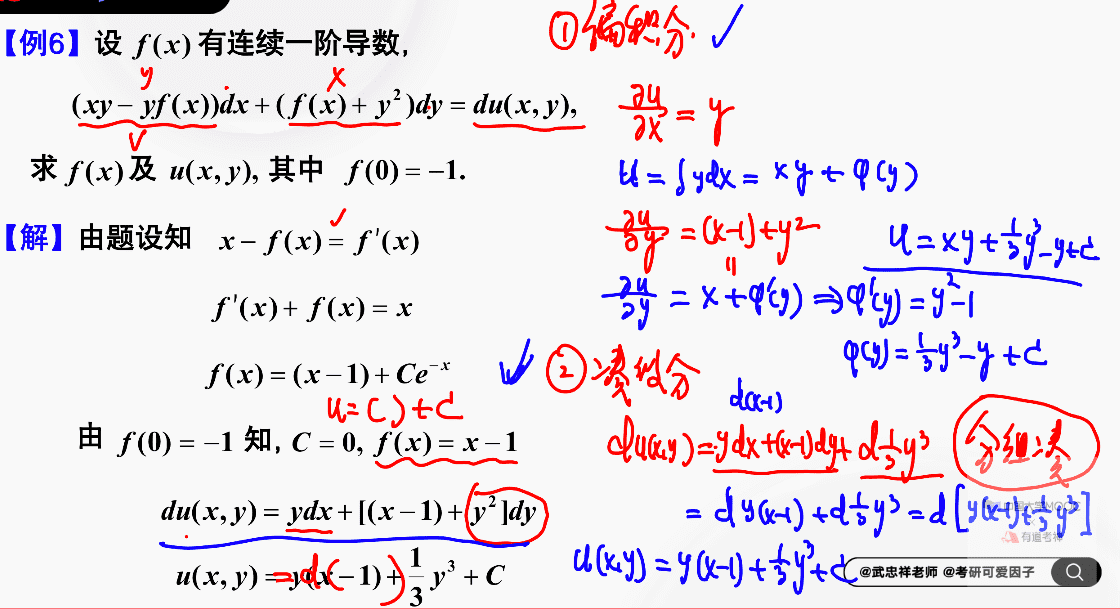 【例6】设 f(x) 有连续一阶导数,
y
x
(xy − yf(x))dx + (f(x) + y²)dy = du(x, y),
求 f(x) 及 u(x, y), 其中 f(0) = −1.
【解】由题设知 x − f(x) = f'(x)
f'(x) + f(x) = x
f(x) = (x − 1) + Ce⁻ˣ
u = ( ) + C
由 f(0) = −1 知, C = 0, f(x) = x − 1
du(x, y) = ydx + [(x − 1) + y²]dy
u(x, y) = y(x − 1) + 1/3 y³ + C
= d( )
① 偏积分
∂u/∂x = y
u = ∫ydx = xy + φ(y)
∂u/∂y = (x-1) + y²
∂u/∂y = x + φ'(y) ⇒ φ'(y) = y² - 1
φ(y) = 1/3 y³ - y + C
u = xy + 1/3 y³ - y + C
② 凑微分
d(x-1)
du(x,y) = ydx + (x-1)dy + d 1/3 y³
分组凑
= d y(x-1) + d 1/3 y³ = d[y(x-1) + 1/3 y³]
u(x,y) = y(x-1) + 1/3 y³ + C
中国大学MOOC
有道考神
@武忠祥老师 @考研可爱因子